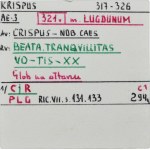 KRISPUS 317-326
AE:3 321. n. LUGDUNUM
Av: CRISPUS-NOB CAES
Rv: BEATA TRANQVILLITAS
VO-TIS-XX
Glob na altanu
1/ C|R C1
PLG RIC.VII.s 131.133 294